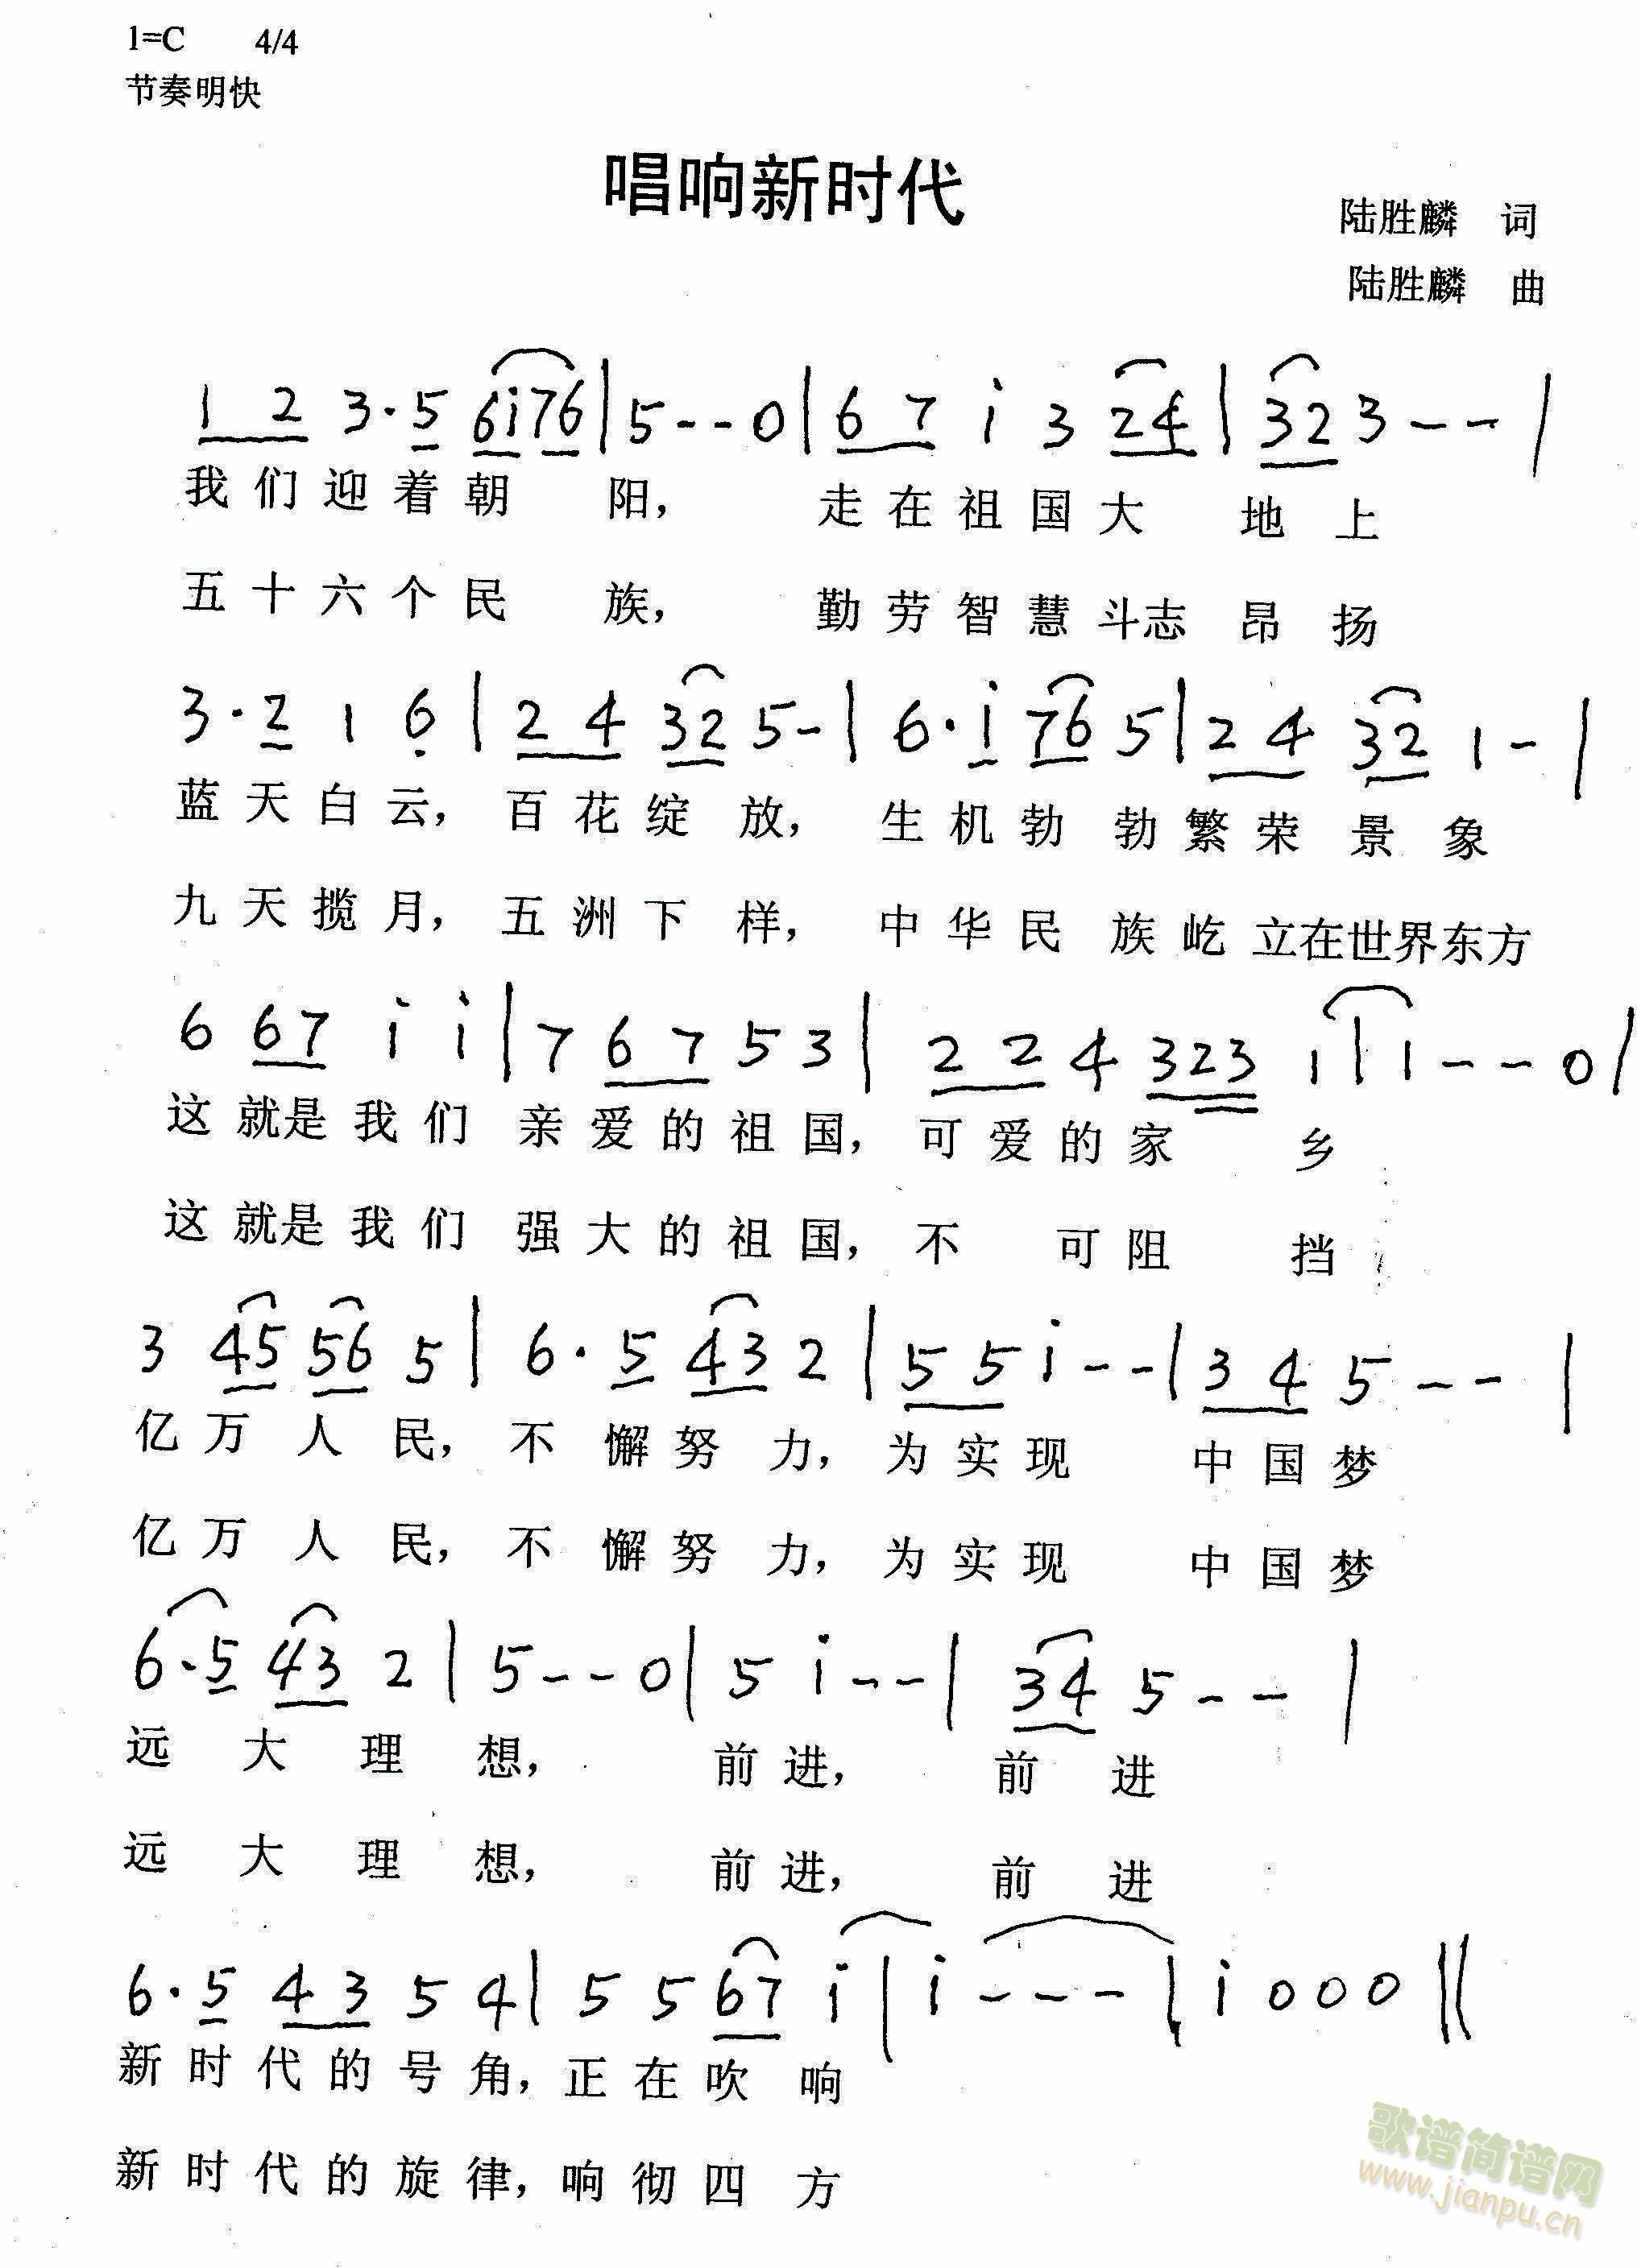 1=C 4/4
节奏明快
唱响新时代
陆胜麟 词
陆胜麟 曲
1 2 3·5 6i76|5--0|6 7 i 3 24|323--|
我们迎着朝 阳， 走在祖国大 地 上
五十六个民 族， 勤劳智慧斗志 昂 扬
3·2 1 6|2 4 32 5-|6·i 76 5|2 4 32 1-|
蓝天白云，百花绽 放， 生机勃 勃繁荣 景 象
九天揽月，五洲下 样， 中华民 族屹立在世界东方
6 67 i i|7 6 7 5 3|2 2 4 323 i|i---0|
这就是我们 亲爱的祖国，可爱的家 乡
这就是我们 强大的祖国，不 可阻 挡
3 45 56 5|6·5 43 2|5 5 i--|3 4 5--|
亿万人 民，不 懈努 力，为实现 中国梦
亿万人 民，不 懈努 力，为实现 中国梦
6·5 43 2|5--0|5 i--|34 5--|
远 大 理 想， 前进， 前 进
远 大 理 想， 前进， 前 进
6·5 4 3 5 4|5 5 67 i|i---|i 0 0 0||
新时代的号角，正在吹 响
新时代的旋律，响彻四 方
歌谱简谱网
www.jianpu.cn